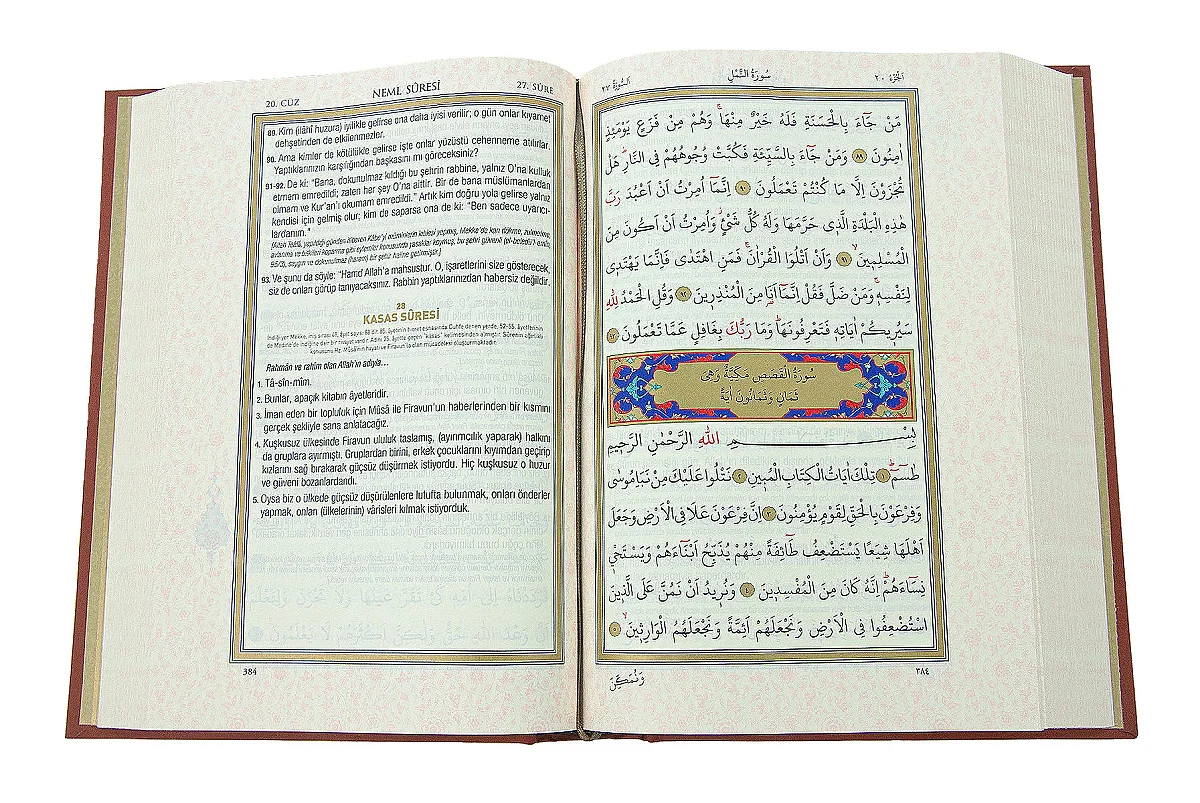 20. CÜZ
NEML SÛRESİ
27. SÛRE
89. Kim (ilâhî huzura) iyilikle gelirse ona daha iyisi verilir; o gün onlar kıyamet
dehşetinden de etkilenmezler.
90. Ama kimler de kötülükle gelirse işte onlar yüzüstü cehenneme atılırlar.
Yaptıklarınızın karşılığından başkasını mı göreceksiniz?
91-92. De ki: “Bana, dokunulmaz kıldığı bu şehrin rabbine, yalnız O’na kulluk
etmem emredildi; zaten her şey O’na aittir. Bir de bana müslümanlardan
olmam ve Kur’an’ı okumam emredildi.” Artık kim doğru yola gelirse yalnız
kendisi için gelmiş olur; kim de saparsa ona de ki: “Ben sadece uyarıcı-
lardanım.”
93. Ve şunu da söyle: “Hamd Allah’a mahsustur. O, işaretlerini size gösterecek,
siz de onları görüp tanıyacaksınız. Rabbin yaptıklarınızdan habersiz değildir.
28
KASAS SÛRESİ
Rahmân ve rahîm olan Allah’ın adıyla...
1. Tâ-sîn-mîm.
2. Bunlar, apaçık kitabın âyetleridir.
3. İman eden bir topluluk için Mûsâ ile Firavun’un haberlerinden bir kısmını
gerçek şekliyle sana anlatacağız.
4. Kuşkusuz ülkesinde Firavun ululuk taslamış, (ayırımcılık yaparak) halkını
da gruplara ayırmıştı. Gruplardan birini, erkek çocuklarını kıyımdan geçirip
kızlarını sağ bırakarak güçsüz düşürmek istiyordu. Hiç kuşkusuz o huzur
ve güveni bozanlardandı.
5. Oysa biz o ülkede güçsüz düşürülenlere lutufta bulunmak, onları önderler
yapmak, onları (ülkelerinin) vârisleri kılmak istiyorduk.
384
الجزء ٢٠
سُورَةُ النَّمْلِ
السورة ٢٧
مَنْ جَٓاءَ بِالْحَسَنَةِ فَلَهُ خَيْرٌ مِنْهَاۚ وَهُمْ مِنْ فَزَعٍ يَوْمَئِذٍ
اٰمِنُونَ ٨٩ وَمَنْ جَٓاءَ بِالسَّيِّئَةِ فَكُبَّتْ وُجُوهُهُمْ فِي النَّارِۜ هَلْ
تُجْزَوْنَ اِلَّا مَا كُنْتُمْ تَعْمَلُونَ ٩٠ اِنَّمَٓا اُمِرْتُ اَنْ اَعْبُدَ رَبَّ
هٰذِهِ الْبَلْدَةِ الَّذ۪ي حَرَّمَهَا وَلَهُ كُلُّ شَيْءٍۘ وَاُمِرْتُ اَنْ اَكُونَ مِنَ
الْمُسْلِم۪ينَۙ ٩١ وَاَنْ اَتْلُوَا الْقُرْاٰنَۚ فَمَنِ اهْتَدٰى فَاِنَّمَا يَهْتَد۪ي
لِنَفْسِه۪ۚ وَمَنْ ضَلَّ فَقُلْ اِنَّمَٓا اَنَا۬ مِنَ الْمُنْذِر۪ينَ ٩٢ وَقُلِ الْحَمْدُ لِلّٰهِ
سَيُر۪يكُمْ اٰيَاتِه۪ فَتَعْرِفُونَهَاۜ وَمَا رَبُّكَ بِغَافِلٍ عَمَّا تَعْمَلُونَ ٩٣
سُورَةُ الْقَصَصِ مَكِّيَّةٌ وَهِيَ
ثَمَانٍ وَثَمَانُونَ اٰيَةً
بِسْمِ اللّٰهِ الرَّحْمٰنِ الرَّح۪يمِ
طٰسٓمٓ ١ تِلْكَ اٰيَاتُ الْكِتَابِ الْمُب۪ينِ ٢ نَتْلُوا عَلَيْكَ مِنْ نَبَأِ مُوسٰى
وَفِرْعَوْنَ بِالْحَقِّ لِقَوْمٍ يُؤْمِنُونَ ٣ اِنَّ فِرْعَوْنَ عَلَا فِي الْاَرْضِ وَجَعَلَ
اَهْلَهَا شِيَعًا يَسْتَضْعِفُ طَٓائِفَةً مِنْهُمْ يُذَبِّحُ اَبْنَٓاءَهُمْ وَيَسْتَحْي۪
نِسَٓاءَهُمْۜ اِنَّهُ كَانَ مِنَ الْمُفْسِد۪ينَ ٤ وَنُر۪يدُ اَنْ نَمُنَّ عَلَى الَّذ۪ينَ
اسْتُضْعِفُوا فِي الْاَرْضِ وَنَجْعَلَهُمْ اَئِمَّةً وَنَجْعَلَهُمُ الْوَارِث۪ينَۙ ٥
٣٨٤
وَنُمَكِّنَ